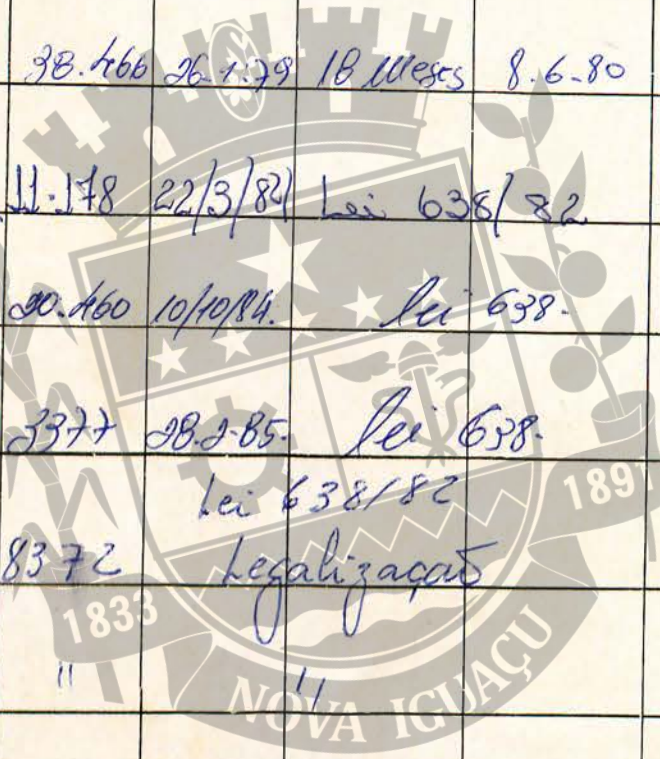 38.466 26-1-79 18 Meses 8-6-80
11.178 22/3/82 Lei 638/82
20.460 10/10/84. Lei 638-
3377 28-2-85. Lei 638-
Lei 638/82
8372 Legalização
" "
1833 1891
NOVA IGUAÇU